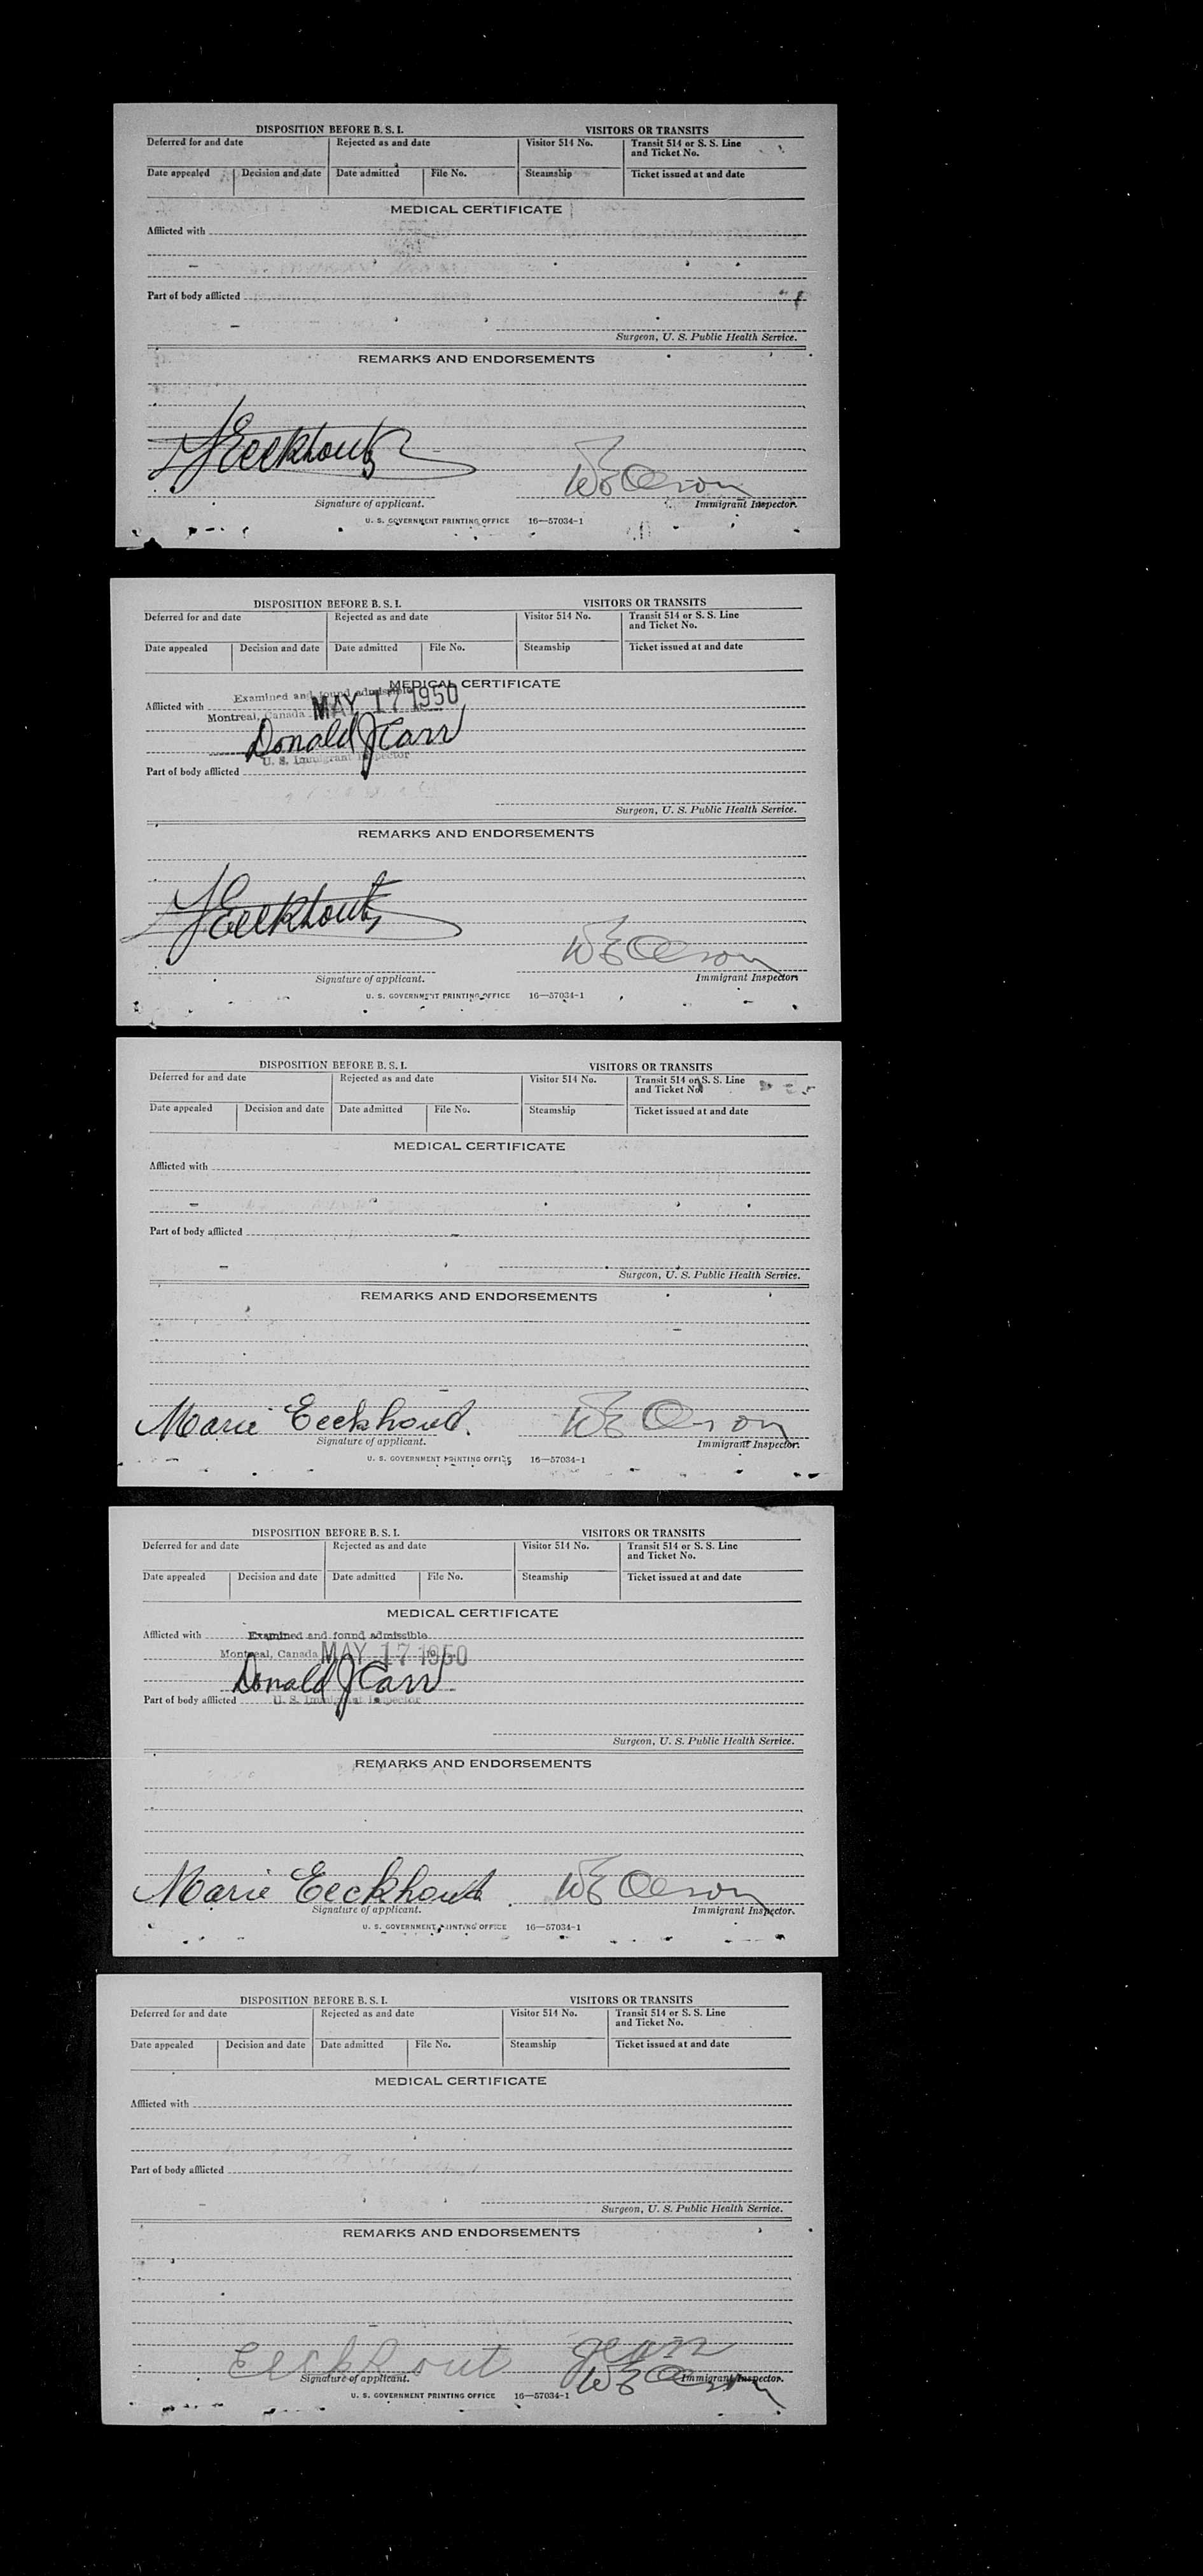 DISPOSITION BEFORE B. S. I. VISITORS OR TRANSITS
Deferred for and date Rejected as and date Visitor 514 No. Transit 514 or S. S. Line
and Ticket No.
Date appealed Decision and date Date admitted File No. Steamship Ticket issued at and date
MEDICAL CERTIFICATE
Afflicted with
Part of body afflicted
Surgeon, U. S. Public Health Service.
REMARKS AND ENDORSEMENTS
Eeckhout
Signature of applicant. Immigrant Inspector.
U. S. GOVERNMENT PRINTING OFFICE 16—57034-1
DISPOSITION BEFORE B. S. I. VISITORS OR TRANSITS
Deferred for and date Rejected as and date Visitor 514 No. Transit 514 or S. S. Line
and Ticket No.
Date appealed Decision and date Date admitted File No. Steamship Ticket issued at and date
MEDICAL CERTIFICATE
Examined and found admissible
Afflicted with
Montreal, Canada MAY 17 1950
Donald J Carr
U. S. Immigrant Inspector
Part of body afflicted
Surgeon, U. S. Public Health Service.
REMARKS AND ENDORSEMENTS
Eeckhout
Signature of applicant. Immigrant Inspector.
U. S. GOVERNMENT PRINTING OFFICE 16—57034-1
DISPOSITION BEFORE B. S. I. VISITORS OR TRANSITS
Deferred for and date Rejected as and date Visitor 514 No. Transit 514 or S. S. Line
and Ticket No.
Date appealed Decision and date Date admitted File No. Steamship Ticket issued at and date
MEDICAL CERTIFICATE
Afflicted with
Part of body afflicted
Surgeon, U. S. Public Health Service.
REMARKS AND ENDORSEMENTS
Marie Eeckhout.
Signature of applicant. Immigrant Inspector.
U. S. GOVERNMENT PRINTING OFFICE 16—57034-1
DISPOSITION BEFORE B. S. I. VISITORS OR TRANSITS
Deferred for and date Rejected as and date Visitor 514 No. Transit 514 or S. S. Line
and Ticket No.
Date appealed Decision and date Date admitted File No. Steamship Ticket issued at and date
MEDICAL CERTIFICATE
Afflicted with Examined and found admissible
Montreal, Canada MAY 17 1950
Donald J Carr
Part of body afflicted U. S. Immigrant Inspector
Surgeon, U. S. Public Health Service.
REMARKS AND ENDORSEMENTS
Marie Eeckhout.
Signature of applicant. Immigrant Inspector.
U. S. GOVERNMENT PRINTING OFFICE 16—57034-1
DISPOSITION BEFORE B. S. I. VISITORS OR TRANSITS
Deferred for and date Rejected as and date Visitor 514 No. Transit 514 or S. S. Line
and Ticket No.
Date appealed Decision and date Date admitted File No. Steamship Ticket issued at and date
MEDICAL CERTIFICATE
Afflicted with
Part of body afflicted
Surgeon, U. S. Public Health Service.
REMARKS AND ENDORSEMENTS
Eeckhout jean
Signature of applicant. Immigrant Inspector.
U. S. GOVERNMENT PRINTING OFFICE 16—57034-1